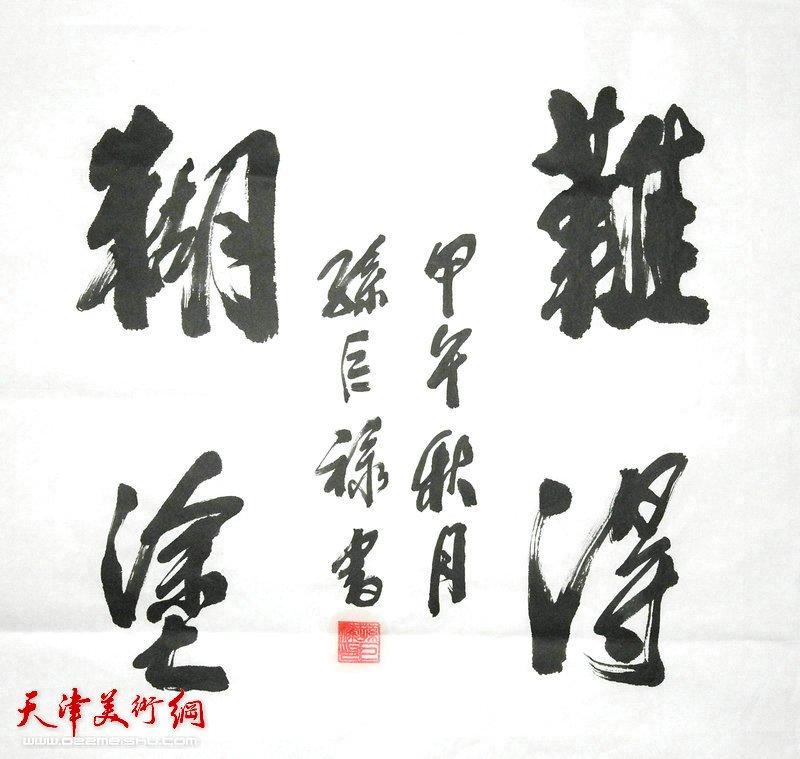 難得
糊塗
甲午秋月
孫巨祿書
天津美術網
www.beemeishu.com